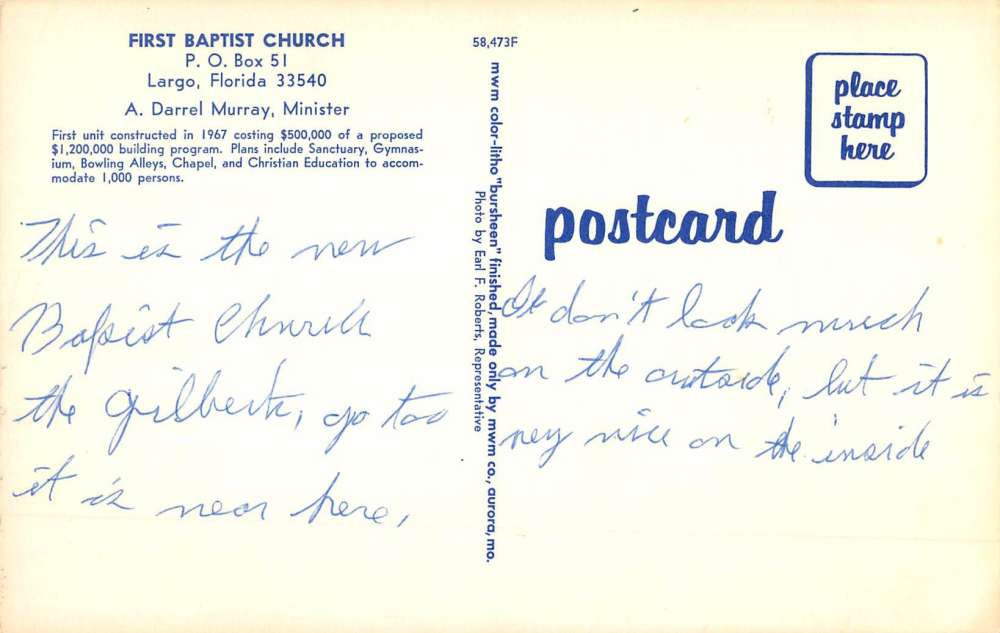 FIRST BAPTIST CHURCH
P. O. Box 51
Largo, Florida 33540
A. Darrel Murray, Minister
First unit constructed in 1967 costing $500,000 of a proposed
$1,200,000 building program. Plans include Sanctuary, Gymnas-
ium, Bowling Alleys, Chapel, and Christian Education to accom-
modate 1,000 persons.
This is the new
Baptist Church
the Gilberts, go too
it is near here,
58,473F
mwm color-litho "bursheen" finished, made only by mwm co., aurora, mo.
Photo by Earl F. Roberts, Representative
place
stamp
here
postcard
It don't look much
on the outside, but it is
very nice on the inside